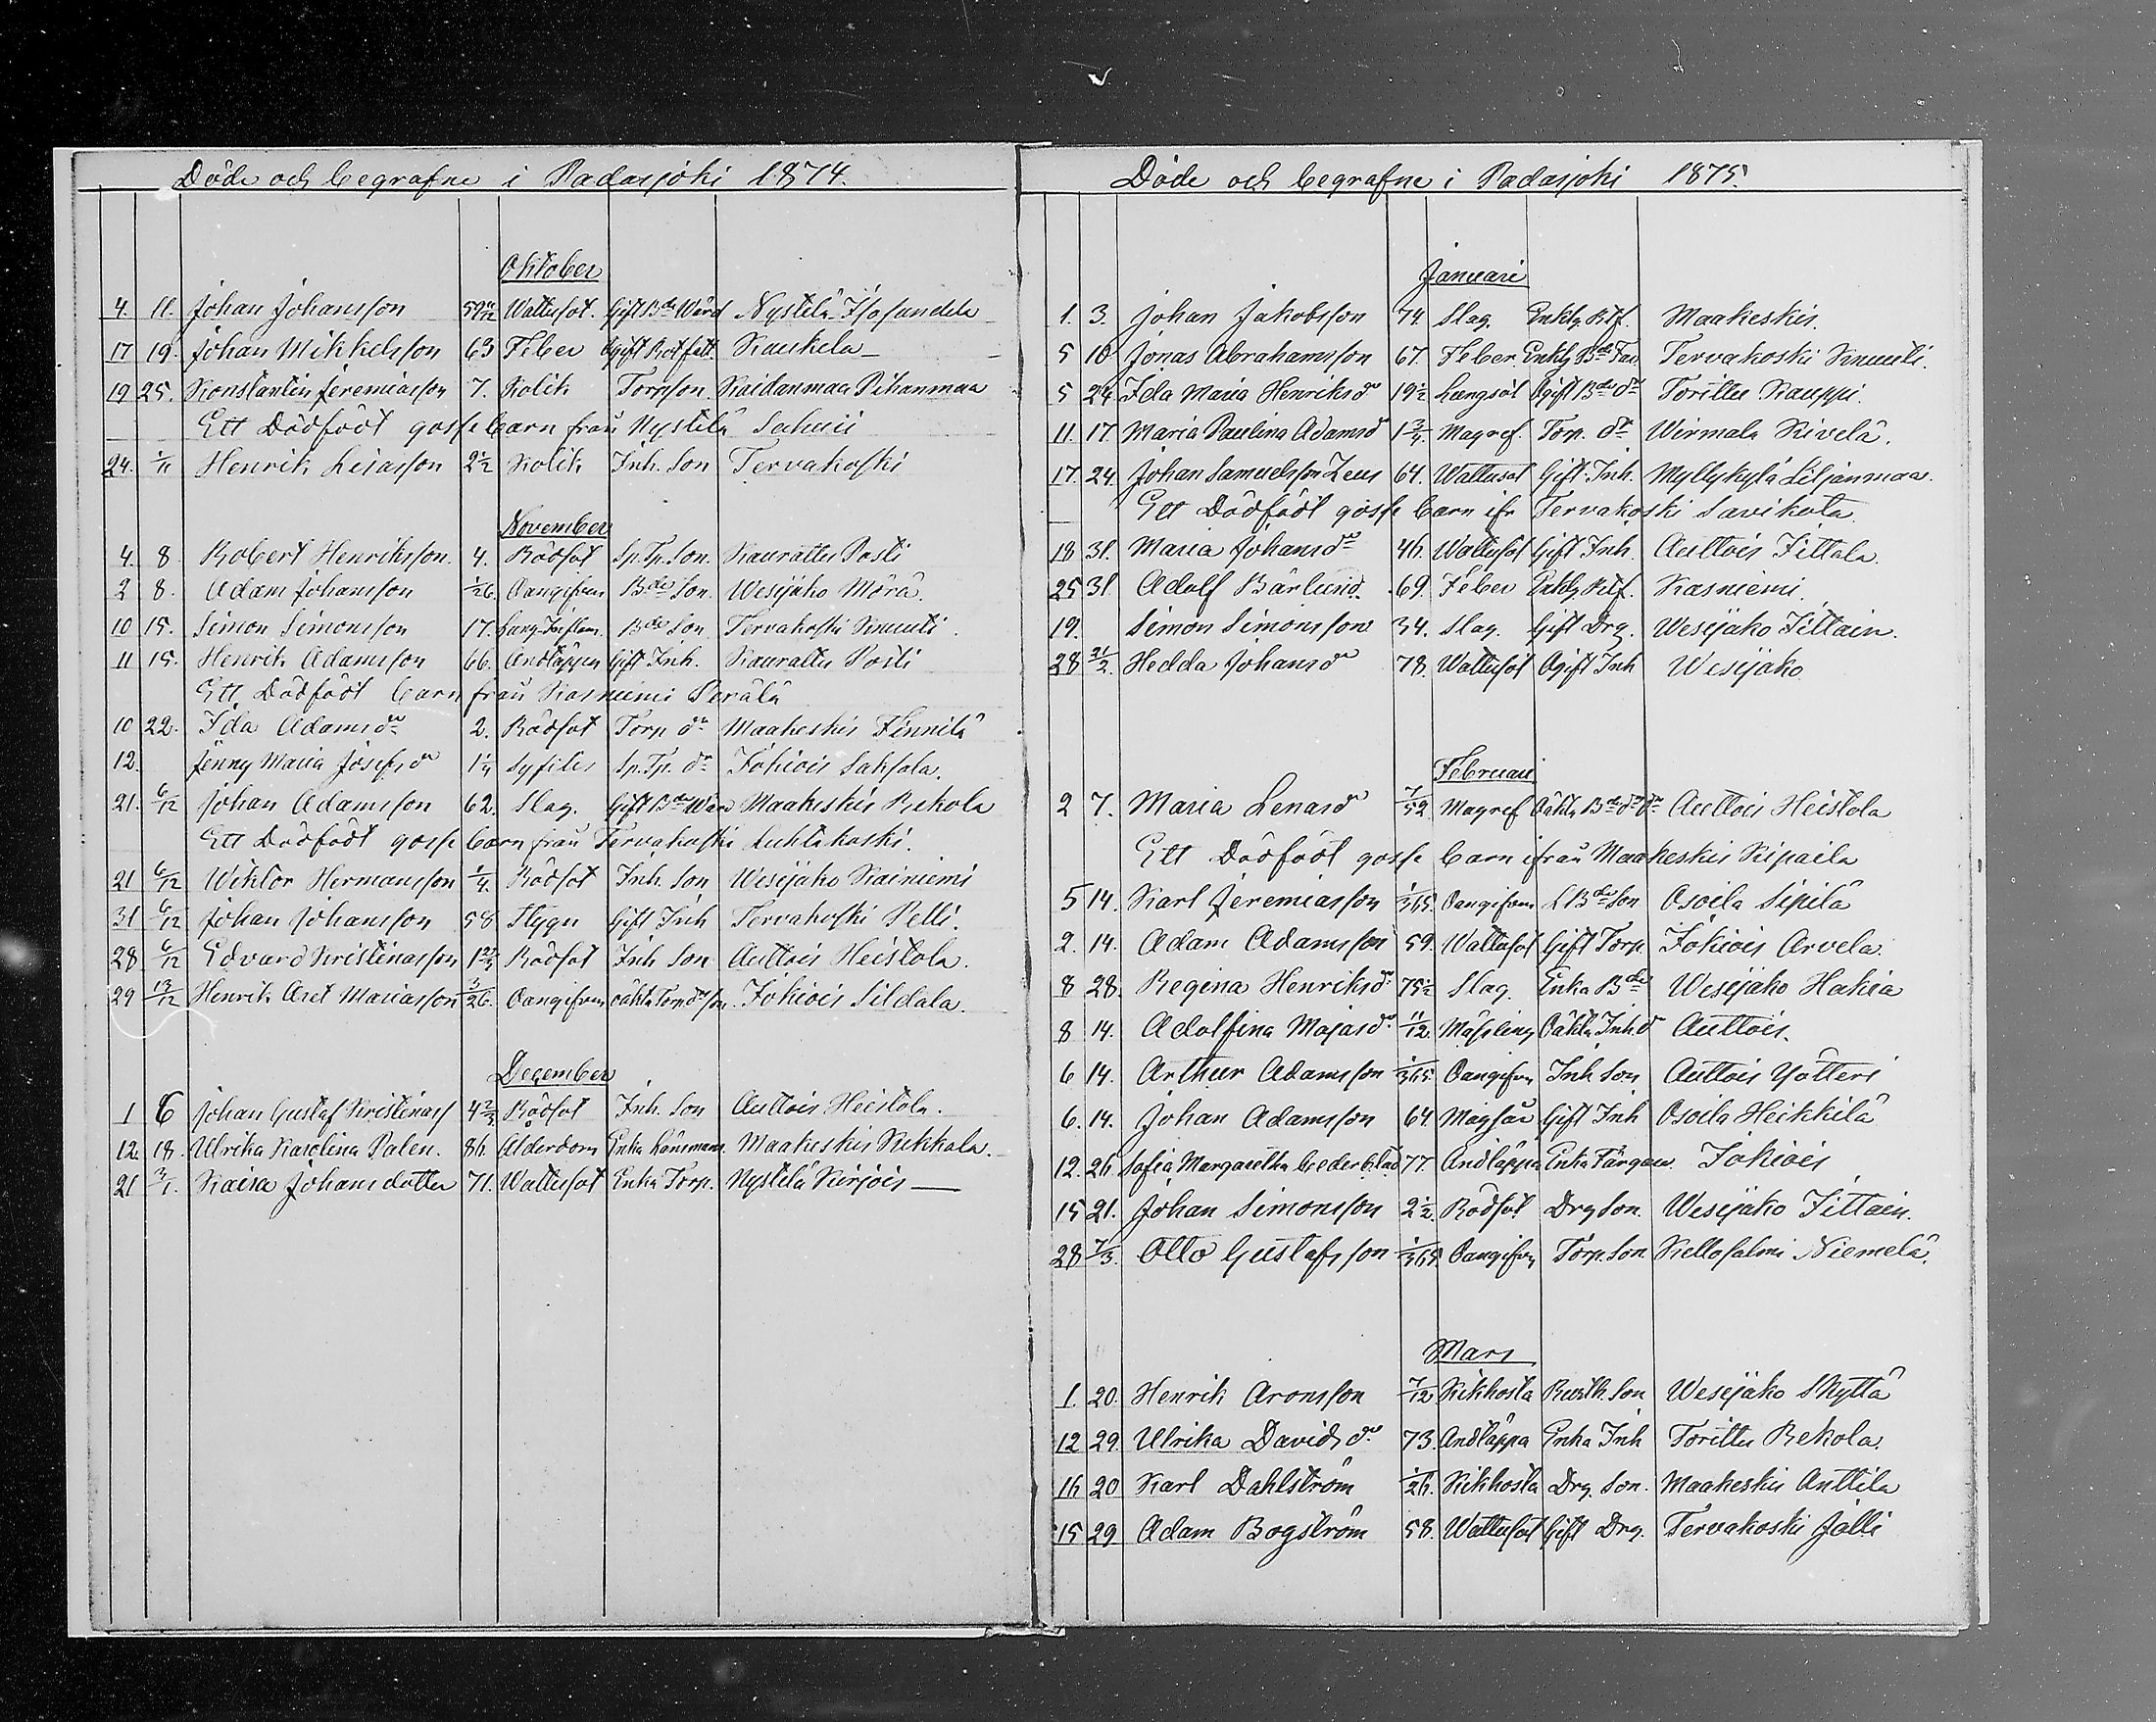 Döde och begrafne i Padasjoki 1874.
Oktober
4. 11. Johan Johansson 59 11/12 Wattusot. Gift Bde Wärd Nystelä Isosundela
17 19. Johan Mikkelsson 63 Feber Gift Rotfatt. Kaukela
19 25. Konstantin Jeremiasson 7. Kolik Torpson. Kaidanmaa Pihanmaa
Ett Dödfödt gosse barn från Nystelä
24. 1/11 Henrik Lisasson 2 1/2 Kolik Inh. Son Tervakoski
November
4. 8. Robert Henriksson. 4. Rödsot Sp. Tp. Son. Kaurattu Posti
2 8. Adam Johansson 1/26. Oangifven Bde Son. Wesijako Mörä.
10 15. Simon Simonsson 17. Lung-Inflam. Bde Son Tervakoski Knuuti.
11 15. Henrik Adamsson 66. Andtäppa Gift Inh. Kaurattu Posti
Ett Dödfödt barn från Kasniemi Perälä
10 22. Ida Adamsdr 2. Rödsot Torp dr Maakeskis Finnilä
12. Jenny Maria Josefsdr 1 1/4 Syfilis Sp. Tp. dr Jokiois Saksala.
21. 6/12 Johan Adamsson 62. Slag. Gift Bde Wärd Maakeskis Rekola
Ett Dödfödt gosse barn från Tervakoski Luhtakoski.
21 6/12 Wiktor Hermansson 1/4. Rödsot Inh. Son Wesijako Kainiemi
31 6/12 Johan Johansson 58 Flygn Gift Inh Tervakoski Pelli.
28. 6/12 Edvard Kristinasson 1 2/3 Rödsot Inh Son Auttois Heistola.
29 13/12 Henrik Aret Mariasson 3/26. Oangifven oäkta Torp. drs son. Jokiois Sildala.
December
1 6 Johan Gustaf Kristinass 4 2/3 Rödsot Inh. Son Auttois Heistola.
12. 18. Ulrika Karolina Palen. 86. Ålderdom Enka Länsmans. Maakeskis Kekkala.
21 3/1. Kaisa Johansdotter 71. Wattusot Enka Torp. Nystelä Kirjois
Döde och begrafne i Padasjoki 1875.
Januari
1. 3. Johan Jakobsson 74. Slag. Enkling Rtf. Maakeskis.
5 10 Jonas Abrahamsson 67. Feber. Enkling Bde Far Tervakoski Knuuti.
5 24. Ida Maria Henriksdr 19 1/2 Lungsot Ogift Bde dr Torittu Kauppi.
11. 17. Maria Paulina Adamsdr 1 3/4. Magref. Torp. dr Wirmala Kivelä.
17. 24. Johan Samuelsson Zeus 64. Wattusot Gift Inh. Myllykylä Liljanmaa.
Ett Dödfödt gosse barn ifr Tervakoski Savikota
18 31. Maria Johansdr 46. Wattusot Gift Inh. Auttois Tittola.
25 31 Adolf Bärlund. 69. Feber Enkling Rtf. Kasniemi.
19. Simon Simonsson 34. Slag. Gift Drg. Wesijako Tittain.
28 21/2. Hedda Johansdr 78. Wattusot Ogift Inh Wesijako
Februari
2 7. Maria Lenasdr 7/52 Magref Oäkta Bde drs dr Auttois Heistola
Ett Dödfödt gosse barn ifrån Maakeskis Kipaila
5 14. Karl Jeremiasson 1/365. Oangifven L Bde Son Osoila Sipilä
2. 14. Adam Adamsson 59. Wattusot Gift Torp. Jokiois Arvela.
8 28. Regina Henriksdr 75 1/2 Slag. Enka Bde Wesijako Hakia
8 14. Adolfina Majasdr 11/12. Mässling Oäkta Inh. d Auttois.
6 14. Arthur Adamsson 1/365. Oangifven Inh Son Auttois Yötteri
6. 14. Johan Adamsson 64. Magsår Gift Inh Osoila Heikkilä
12. 26. Sofia Margaretha Cederblad 77. Andtäppa Enka Färgare. Jokiois
15 21. Johan Simonsson 2 1/2. Rödsot Drg Son. Wesijako Tittain.
28 7/3. Otto Gustafsson 1/365. Oangifven Torp. Son Kellosalmi Niemelä.
Mars
1. 20. Henrik Aronsson 7/12 Kikhosta Rusth. Son Wesijako Skyttä
12 29. Ulrika Davidsdr 73. Andtäppa Enka Inh Torittu Rekola.
16 20 Karl Dahlström 1/26. Kikhosta Drg. Son. Maakeskis Anttila
15 29. Adam Bogström 58. Wattusot Gift Drg. Tervakoski Jälli